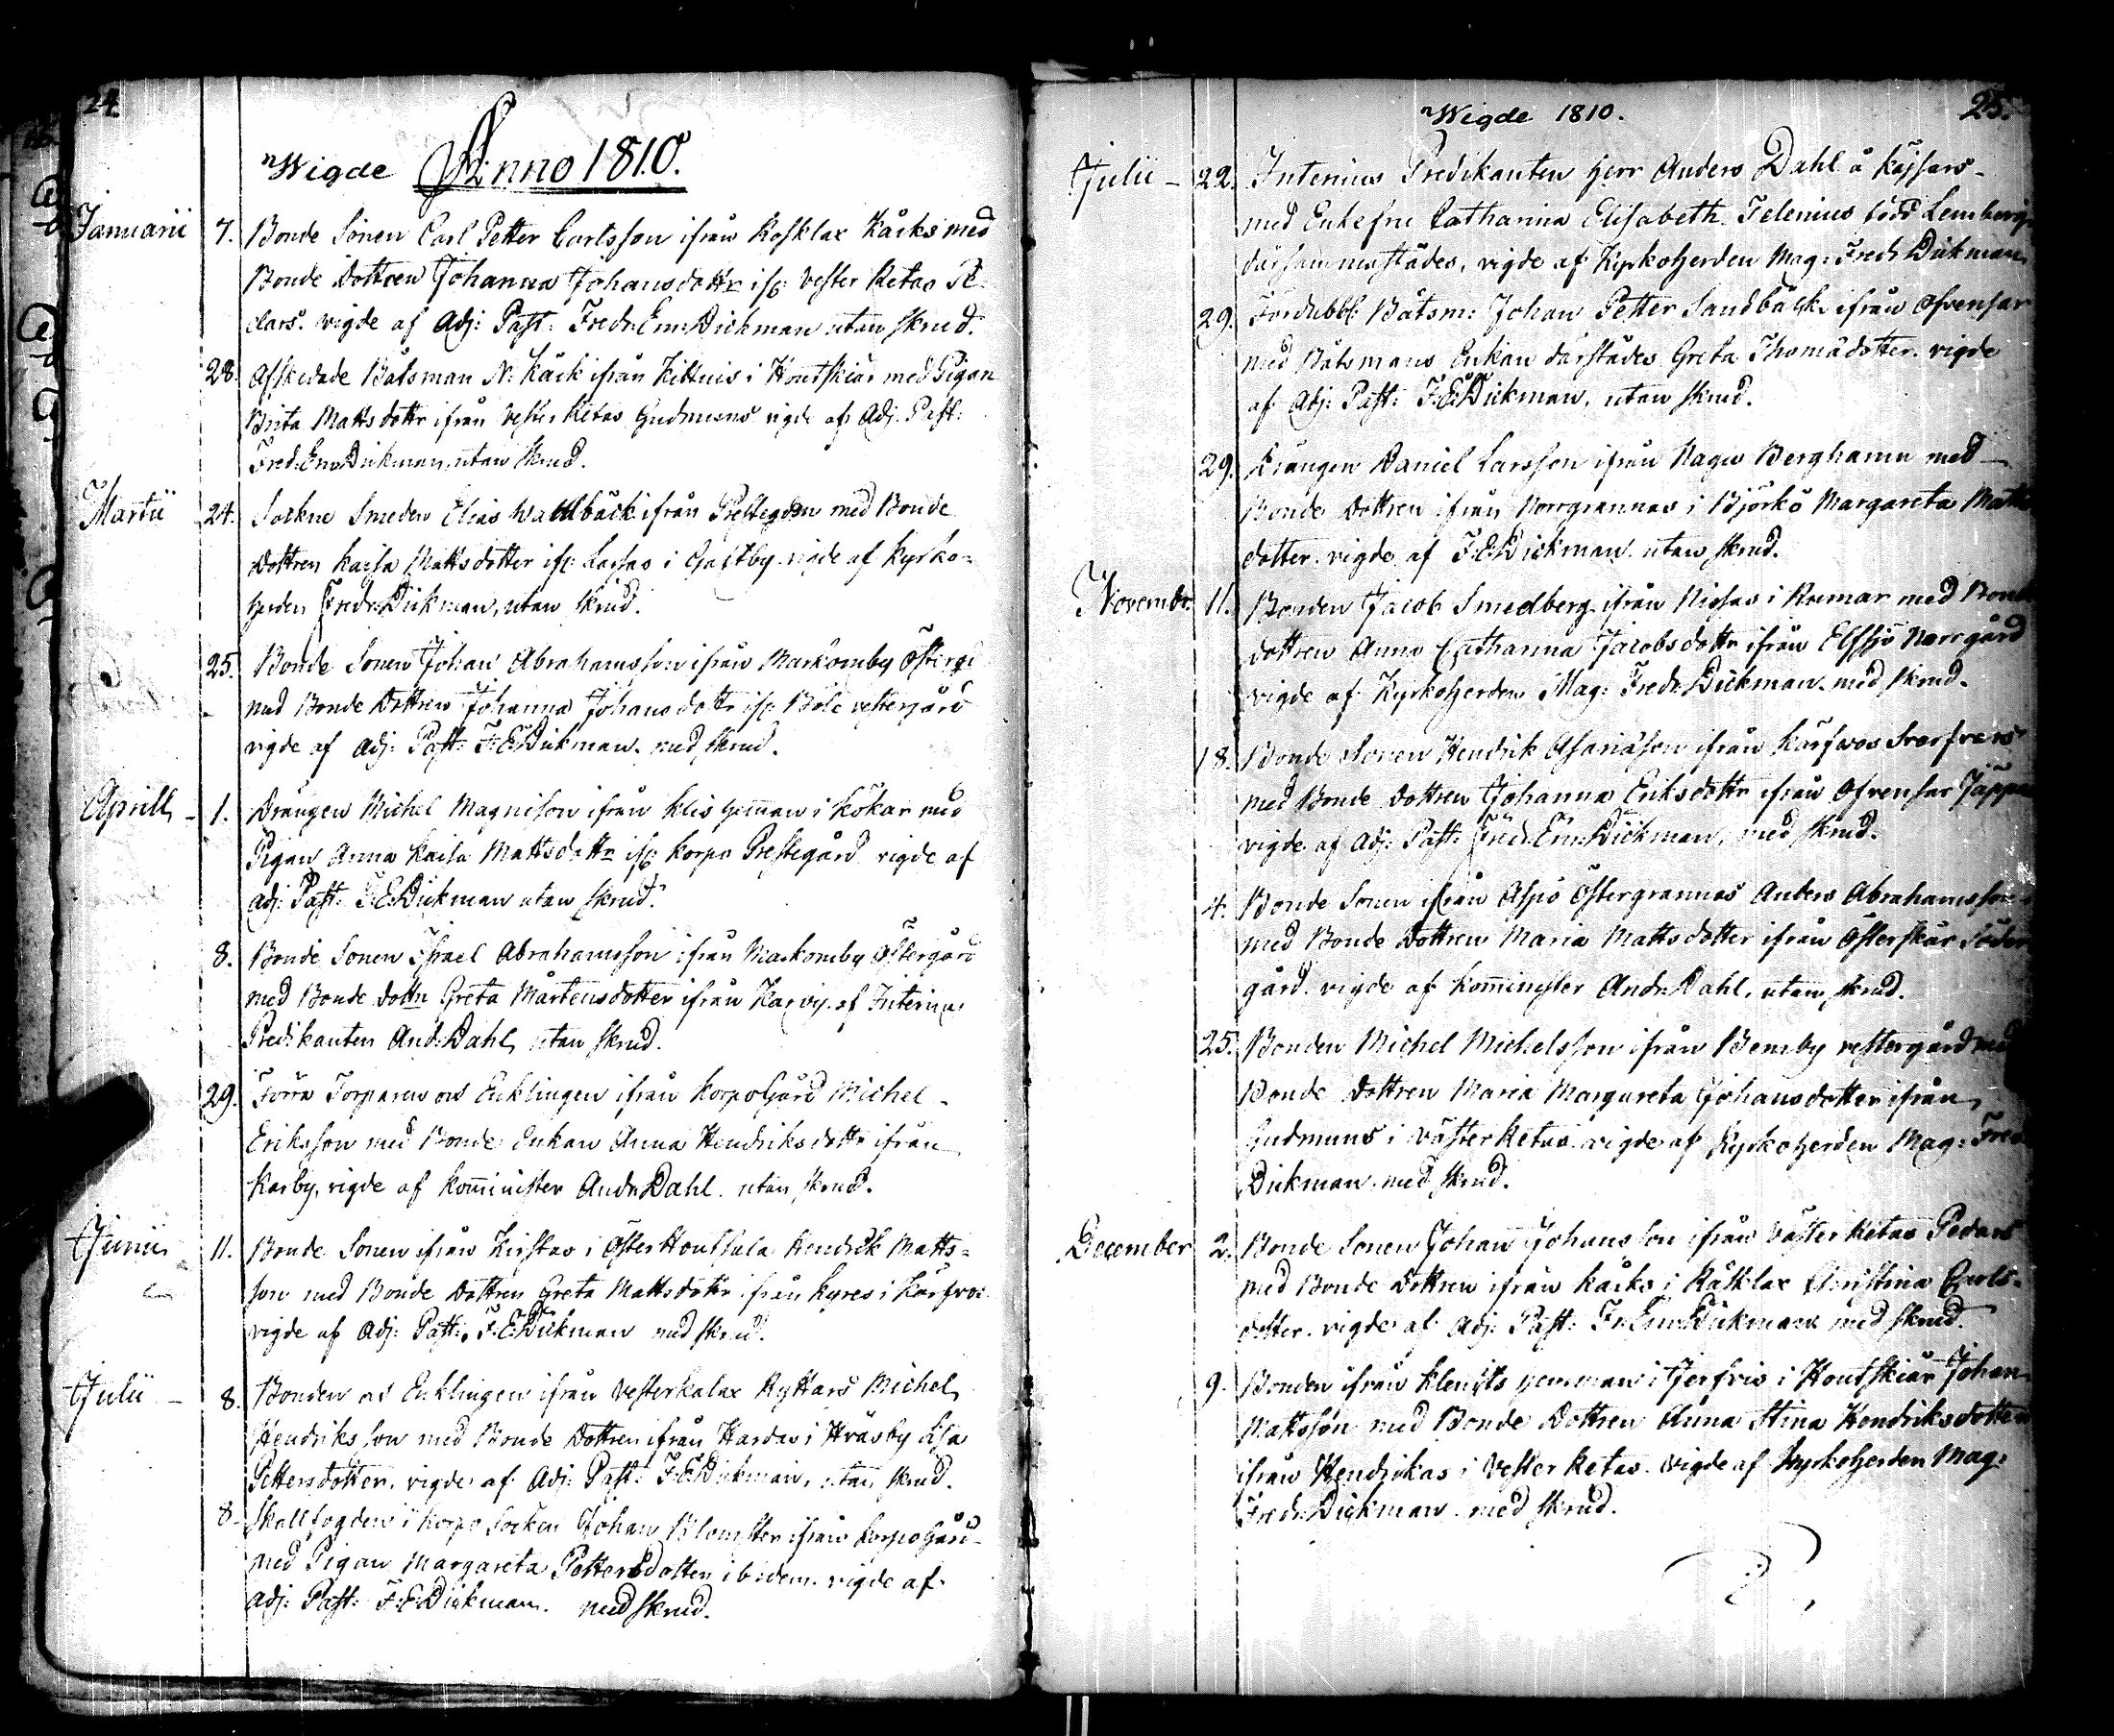 24.
Wigde Anno 1810.
Januarii 7. Bonde Sonen Carl Petter Carlsson ifrån Rosklax Kåcks med
Bonde Dottren Johanna Johansdottr ifr: Vester Retas Pe-
dars. vigde af Adj: Past: Fredr: Em: Dickman utan skrud.
28. Afskedade Båtsman N: Käck ifrån Kittuis i Houtskiär med Pigan
Brita Mattsdottr ifrån Vester Retas Gudmuns vigde af Adj. Past:
Fred: Em: Dickman utan skrud.
Martii 24. Sockne Smeden Elias Wahlbäck ifrån Prestegden med Bonde
Dottren Kaisa Mattsdotter ifr: Lassas i Galtby vigde af Kyrko-
herden Fredr: Dickman, utan skrud.
25. Bonde Sonen Johan Abrahamsson ifrån Markomby Östergd
med Bonde Dottren Johanna Johansdottr ifr: Böle vestergård
vigde af Adj: Past: F: E: Dickman. med skrud.
Aprill 1. Drängen Michel Magnison ifrån Klis hemman i Kökar med
Pigan Anna Kaisa Mattsdottr ifr: Korpo Prestegård vigde af
Adj: Past: F: E: Dickman utan skrud.
8. Bonde Sonen Israel Abrahamsson ifrån Markomby Östergård
med Bonde dottn Greta Mårtensdotter ifrån Karvy. af Interims
Predikanten And: Dahl, utan skrud.
29. Förra Torparen os Enklingen ifrån Korpo Gård Michel
Eriksson med Bonde Enkan Anna Hendriksdottr ifrån
Karby, vigde af Kom̄inister Andr: Dahl. utan skrud.
Junii 11. Bonde Sonen ifrån Kirstas i Öster Houtsala Hendrik Matts-
son med Bonde Dottren Greta Mattsdottr ifrån Kyres i Kärfvos
vigde af Adj: Past: F: E: Dickman med skrud.
Julii 8. Bonden os Enklingen ifrån Vesterkalax Ryttars Michel
Hendriksson med Bonde Dottren ifrån Hardas i Hväsby Lisa
Pettersdotter, vigde af Adj: Past: F: E: Dickman, utan skrud.
8. Skallfogden i Korpo Socken Johan Blomster ifrån Korpo Gård
med Pigan Margareta Pettersdotter ibidem. vigde af
Adj: Past: F: E: Dickman. med skrud.
Wigde 1810. 25.
Julii 22. Interims Predikanten Herr Anders Dahl å Kässars
med Enkefru Catharina Elisabeth Telenius född Lemberg
därsammastädes, vigde af Kyrkoherden Mag: Fredr: Dickman
29. Fördubbl: Båtsm: Johan Petter Sandbäck ifrån Ofvensar
med Båtsmans Enkan därstädes Greta Thomådotter. vigde
af Adj: Past: F: E: Dickman, utan skrud.
29. Drängen Daniel Larsson ifrån Nagu Berghamn med
Bonde Dottren ifrån Norrgrannas i Björkö Margareta Matts
dotter. vigde af F: E: Dickman. utan skrud.
Novembr: 11. Bonden Jacob Smedberg ifrån Nissas i Rumar med Bonde
dottren Anna Catharina Jacobsdottr ifrån Elfsjö Norrgård
vigde af Kyrkoherden Mag: Fredr: Dickman. med skrud.
18. Bonde Sonen Hendrik Asariäson ifrån Kärfvos Sverfvers
med Bonde Dottren Johanna Eriksdottr ifrån Ofvensar Jäppas
vigde af Adj: Past: Fred: Em: Dickman, med skrud.
4. Bonde Sonen ifrån Aspö Östergrannas Anders Abrahamsson
med Bonde Dottren Maria Mattsdotter ifrån Österskär Söder
gård. vigde af Kom̄inister Andr: Dahl, utan skrud.
25. Bonden Michel Michelsson ifrån Bemby vestergård med
Bonde Dottren Maria Margareta Johansdotter ifrån
Gudmuns i väster Retas. vigde af Kyrkoherden Mag: Fred:
Dickman. med skrud.
December 2. Bonde Sonen Johan Johansson ifrån Väster Retas Pedars
med Bonde Dottren ifrån Kåcks i Råsklax Christina Carls-
dotter. vigde af Adj: Past: Fr: Em: Dickman med skrud.
9. Bonden ifrån Klemits hemman i Jerfvis i Houtskiär Johan
Mattsson med Bonde Dottren Anna Stina Hendriksdotter
ifrån Hendrikas i Vester Retas. vigde af Kyrkoherden Mag:
Fredr: Dickman. med skrud.